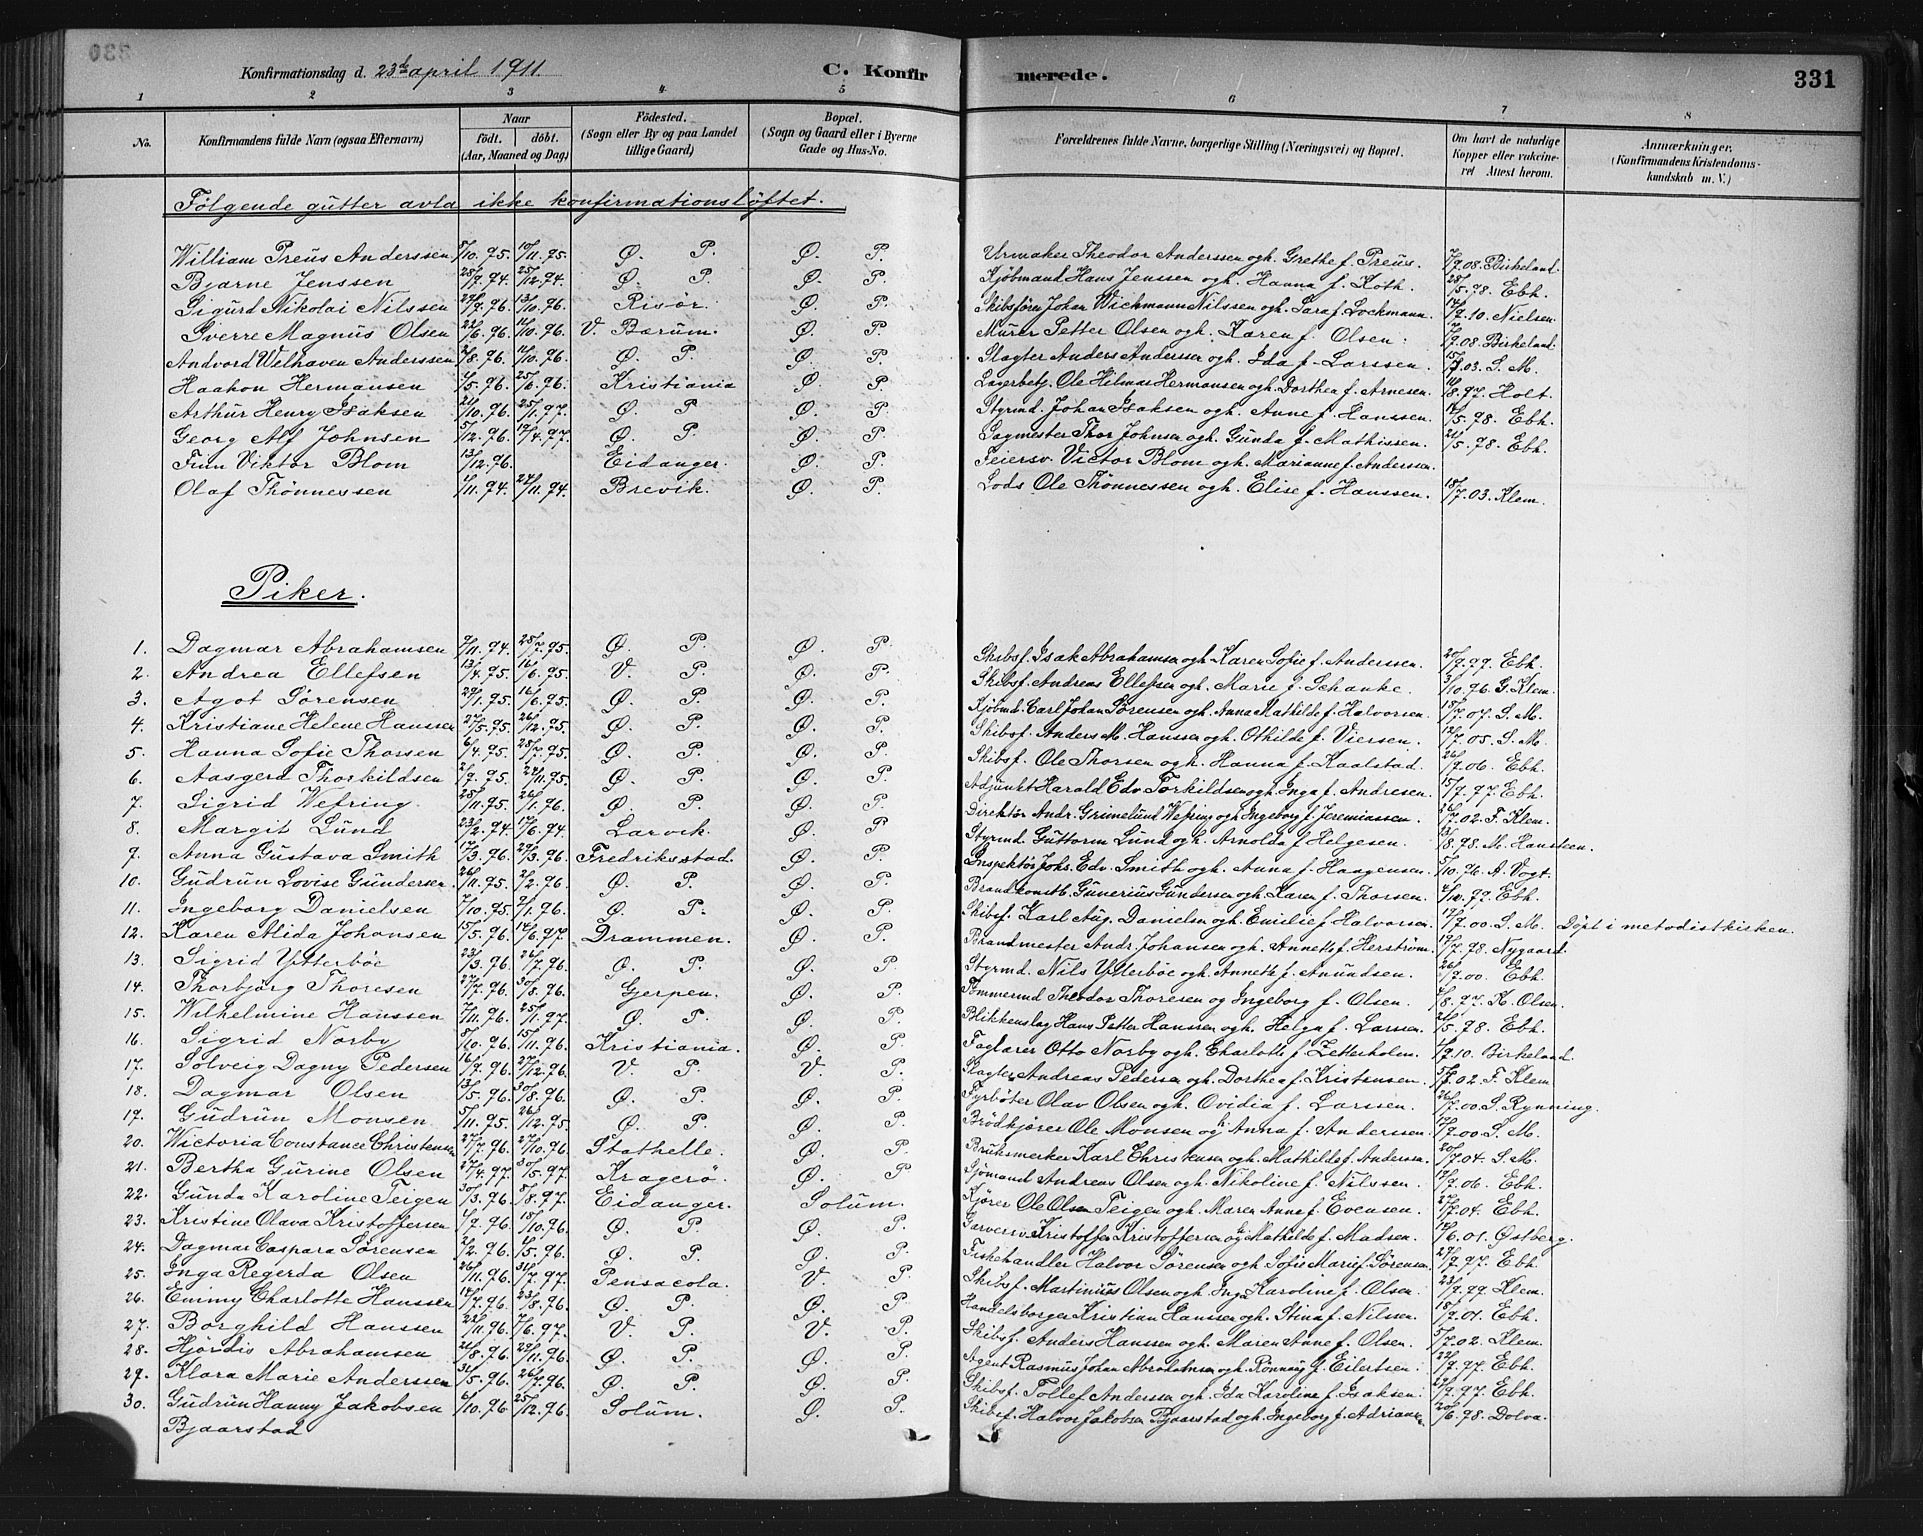 Konfirmationsdag d. 23de april 1911. C. Konfirmerede. 331
1 2 3 4 5 6 7 8
No. Konfirmandens fulde Navn (ogsaa Efternavn) Naar födt. döbt. (Aar, Maaned og Dag) Födested. (Sogn eller By og paa Landet tillige Gaard) Bopæl. (Sogn og Gaard eller i Byerne Gade og Hus-No. Forældrenes fulde Navne, borgerlige Stilling (Næringsvei) og Bopæl. Om havt de naturlige Kopper eller vaccineret Attest herom. Anmærkninger. (Konfirmandens Kristendomskundskab m. V.)
Følgende gutter avla ikke konfirmationsløftet.
William Preus Anderssen 5/10.95. 10/11.95. Ø. P. Ø. P. Urmaker Theodor Anderssen ogh. Grethe f. Preus. 7/9.08. Birkeland.
Bjarne Jenssen 28/9.94. 25/12.94. Ø. P. Ø. P. Kjöbmand Hans Jenssen ogh. Hanna f. Koth. 28/5.98. Ebh.
Sigurd Nikolai Nilssen 13/10.96. Risör. Ø. P. Skibsförer Johan Wichmann Nilssen ogh. Sara f. Lochmann. 17/9.10. Nielsen.
Sverre Magnus Olsen 22/6.96. 11/10.96. V. Bærum. Ø. P. Murer Petter Olsen ogh. Karen f. Olsen. 7/9.08. Birkeland.
Andvord Welhaven Anderssen 2/8.96. 11/10.96. Ø. P. Ø. P. Slagter Anders Andersen ogh. Ida f. Larssen. 15/7.03. S. M.
Haakon Hermansen 1/5.96. 25/6.96. Kristiania Ø. P. Lagerbetj. Ole Hilmar Hermansen ogh. Dorthea f. Arnesen. 8.97. Holt.
Arthur Henry Isaksen 21/10.96. 25/1.97. Ø. P. Ø. P. Styrmd. Johan Isaksen ogh. Anne f. Hanssen. 17/5.98. Ebh.
Georg Alf Johnsen 5/12.96. 19/4.97. Ø. P. Ø. P. Sagmester Thor Johnsen ogh. Gunda f. Mathissen. 21/5.98. Ebh.
Finn Viktor Blom 13/12.96. Eidanger. Ø. P. Feiersv. Victor Blom ogh. Marianne f. Anderssen.
Olaf Thönnessen 1/11.94. 27/11.94. Brevik. Ø. P. Lods Ole Thönnessen ogh. Elise f. Hanssen. 18/7.03. Klem.
Piker.
1. Dagmar Abrahamsen 9/11.94. 28/7.95. Ø. P. Ø. P. Skibsf. Isak Abrahamsen ogh. Karen Sofie f. Anderssen. 20/9.99. Ebh.
2. Andrea Ellefsen 13/4.95. 16/6.95. V. P. Ø. P. Skibsf. Andreas Ellefsen ogh. Marie f. Schanke. 3/10.96. G. Klem.
3. Agot Sørensen 29/1.95. 16/6.95. Ø. P. Ø. P. Kjöbmd. Carl Johan Sørensen ogh. Anna Mathilde f. Halvorsen. 18/7.07. S. M.
4. Kristiane Helene Hanssen 27/5.95. 26/12.95. Ø. P. Ø. P. Skibsf. Anders M. Hanssen ogh. Othilde f. Viersen. 12/7.05. S. M.
5. Hanna Sofie Thorsen 6/4.95. 28/7.95. Ø. P. Ø. P. Skibsf. Ole Thorsen ogh. Hanna f. Kaalstad. 26/9.06. Ebh.
6. Aasgerd Thorkildsen 2/9.95. 24/11.95. Ø. P. Ø. P. Adjunkt Harald Edv. Torkildsen ogh. Inga f. Andresen. 15/9.97. Ebh.
7. Sigrid Wefring. 25/11.95. 26/1.96. Ø. P. Ø. P. Direktör Andr. Grimelund Wefring ogh. Ingeborg f. Jeremiassen. 26/7.02. F. Klem.
8. Margit Lund 23/2.94. 17/6.94. Larvik. Ø. P. Styrmd. Guttorm Lund ogh. Arnolda f. Helgesen. 13/8.98. M. Hansteen.
9. Anna Gustava Smith 17/3.96. 29/3.96. Fredriksstad. Ø. P. Inspektör Johs. Edv. Smith ogh. Anna f. Haagensen. 5/10.96. A. Vogt.
10. Gudrun Lovise Gundersen 26/11.95. 2/2.96. Ø. P. Ø. P. Brandkonstb. Gunerius Gundersen ogh. Karen f. Thorsen. 4/10.99. Ebh.
11. Ingeborg Danielsen 7/10.95. 2/1.96. Ø. P. Ø. P. Skibsf. Karl Aug. Danielsen ogh. Emilie f. Halvorsen. 17/9.00. S. M. Döpt i metodistkirken.
12. Karen Alida Johansen 15/5.96. 14/6.97. Drammen. Ø. P. Brandmester Andr. Johansen ogh. Annette f. Herström. 19/7.98. Nygaard.
13. Sigrid Ytterböe 23/3.96. 26/7.96. Ø. P. Ø. P. Styrmd. Nils Ytterböe ogh. Annette f. Amundsen. 26/9.00. Ebh.
14. Thorbjörg Thoresen 27/7.96. 30/8.96. Gjerpen. Ø. P. Tömmermd Theodor Thoresen og Ingeborg f. Olsen. 8.97. K. Olsen.
15. Wilhelmine Hanssen 7/11.96. 25/1.97. Ø. P. Ø. P. Blikkenslag. Hans Petter Hanssen ogh. Helga f. Larssen. 21/5.98. Ebh.
16. Sigrid Norby 5/10.96. 15/11.96. Kristiania. Ø. P. Faglærer Otto Norby ogh. Charlotte f. Zetterholm. 9.10. Birkeland.
17. Solveig Dagny Pedersen 16/9.96. 27/12.96. V. P. V. P. Slagter Andreas Pedersen ogh. Dorthea f. Kristensen. 5/7.02. F. Klem.
18. Dagmar Olsen 13/5.96. 30/8.96. Ø. P. Ø. P. Fyrböter Olav Olsen ogh. Ovidia f. Larssen. 26/7.00. S. Rynning.
19. Gudrun Monsen 5/11.95. 26/12.95. Ø. P. Ø. P. Brödkjörer Ole Monsen ogh Anna f. Anderssen. 17/9.00. S. M.
20. Wictoria Constance Christensen 27/7.96. 27/10.96. Stathelle. Ø. P. Bruksmerker Karl Christensen ogh. Mathilde f. Andersen. 20/7.04. S. M.
21. Bertha Gurine Olsen 27/4.97. 30/5.97. Kragerö. Ø. P Sjömand Andreas Olsen ogh. Nikoline f. Nilssen. 19/9.06. Ebh.
22. Gunda Karoline Teigen 30/3.96. 5/8.97. Eidanger. Solum. Kjörer Ole Olsen Teigen ogh. Maren Anne f. Evensen. 27/7.04. Ebh.
23. Kristine Olava Kristoffersen 6/7.96. 18/10.96. Ø. P. Ø. P. Garversv. Kristoffer Kristoffersen og Mathilde f. Madsen. 14/6.01. Østberg.
24. Dagmar Caspara Sørensen 2/2.96. 1/5.96. Ø. P. Ø. P. Fiskehandler Halvor Sørensen ogh. Sofie Marie f. Sørensen. 27/9.97. Ebh.
25. Inga Regerda Olsen 26/11.96. 31/7.97. Pensacola. V. P. Skibsf. Martinius Olsen ogh. Inga Karoline f. Olsen. 23/9.99. Klem.
26. Emmy Charlotte Hanssen 14/7.96. 23/8.96. Ø. P. Ø. P. Handelsborger Kristian Hanssen ogh. Stina f. Nilssen. 18/9.01. Ebh.
27. Borghild Hanssen 22/11.96. 7/6.97. V. P. V. P. Skibsf. Anders Hanssen ogh. Maren Anne f. Olsen. 5/7.02. Klem.
28. Hjördis Abrahamsen 21/8.96. 29/11.96. Ø. P. Ø. P. Agent Rasmus Johan Abrahamsen ogh. Rönnaug f. Eilertsen. 22/9.97. Ebh.
29. Klara Marie Anderssen 31/5.96. 26/7.96. Ø. P. Ø. P. Skibsf. Tollef Anderssen ogh. Ida Karoline f. Isaksen. 27/9.97. Ebh.
30. Gudrun Hanny Jakobsen 4/10.96 25/12.96. Solum. Ø. P. Skibsf. Halvor Jakobsen Bjaarstad ogh. Ingeborg f. 20/6.98. Dolva.
Bjaarstad